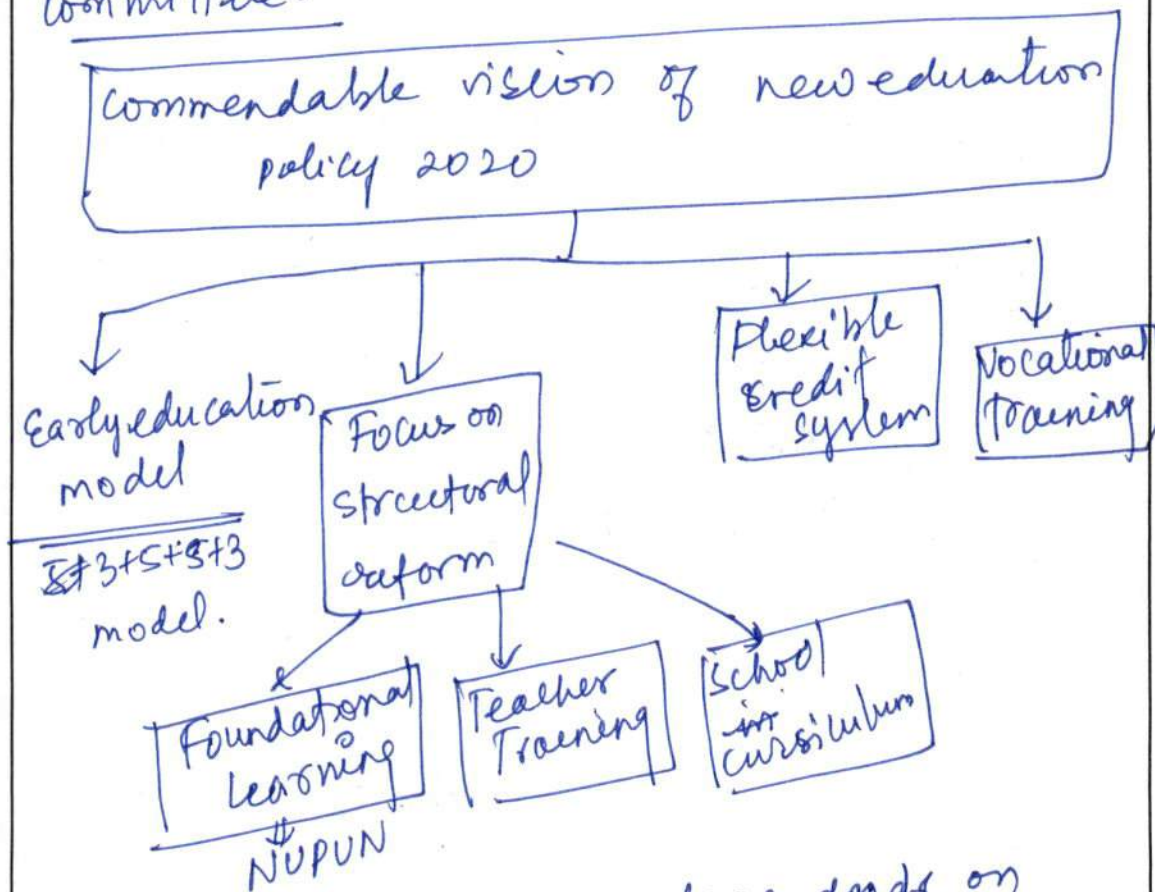 commendable vision of new education
policy 2020
Early education
model
3+5+5+3
model.
Focus on
structoral
reform
Flexible
credit
system
Vocational
Training
Foundational
learning
NUPUN
Teacher
Training
School
curriculum
on